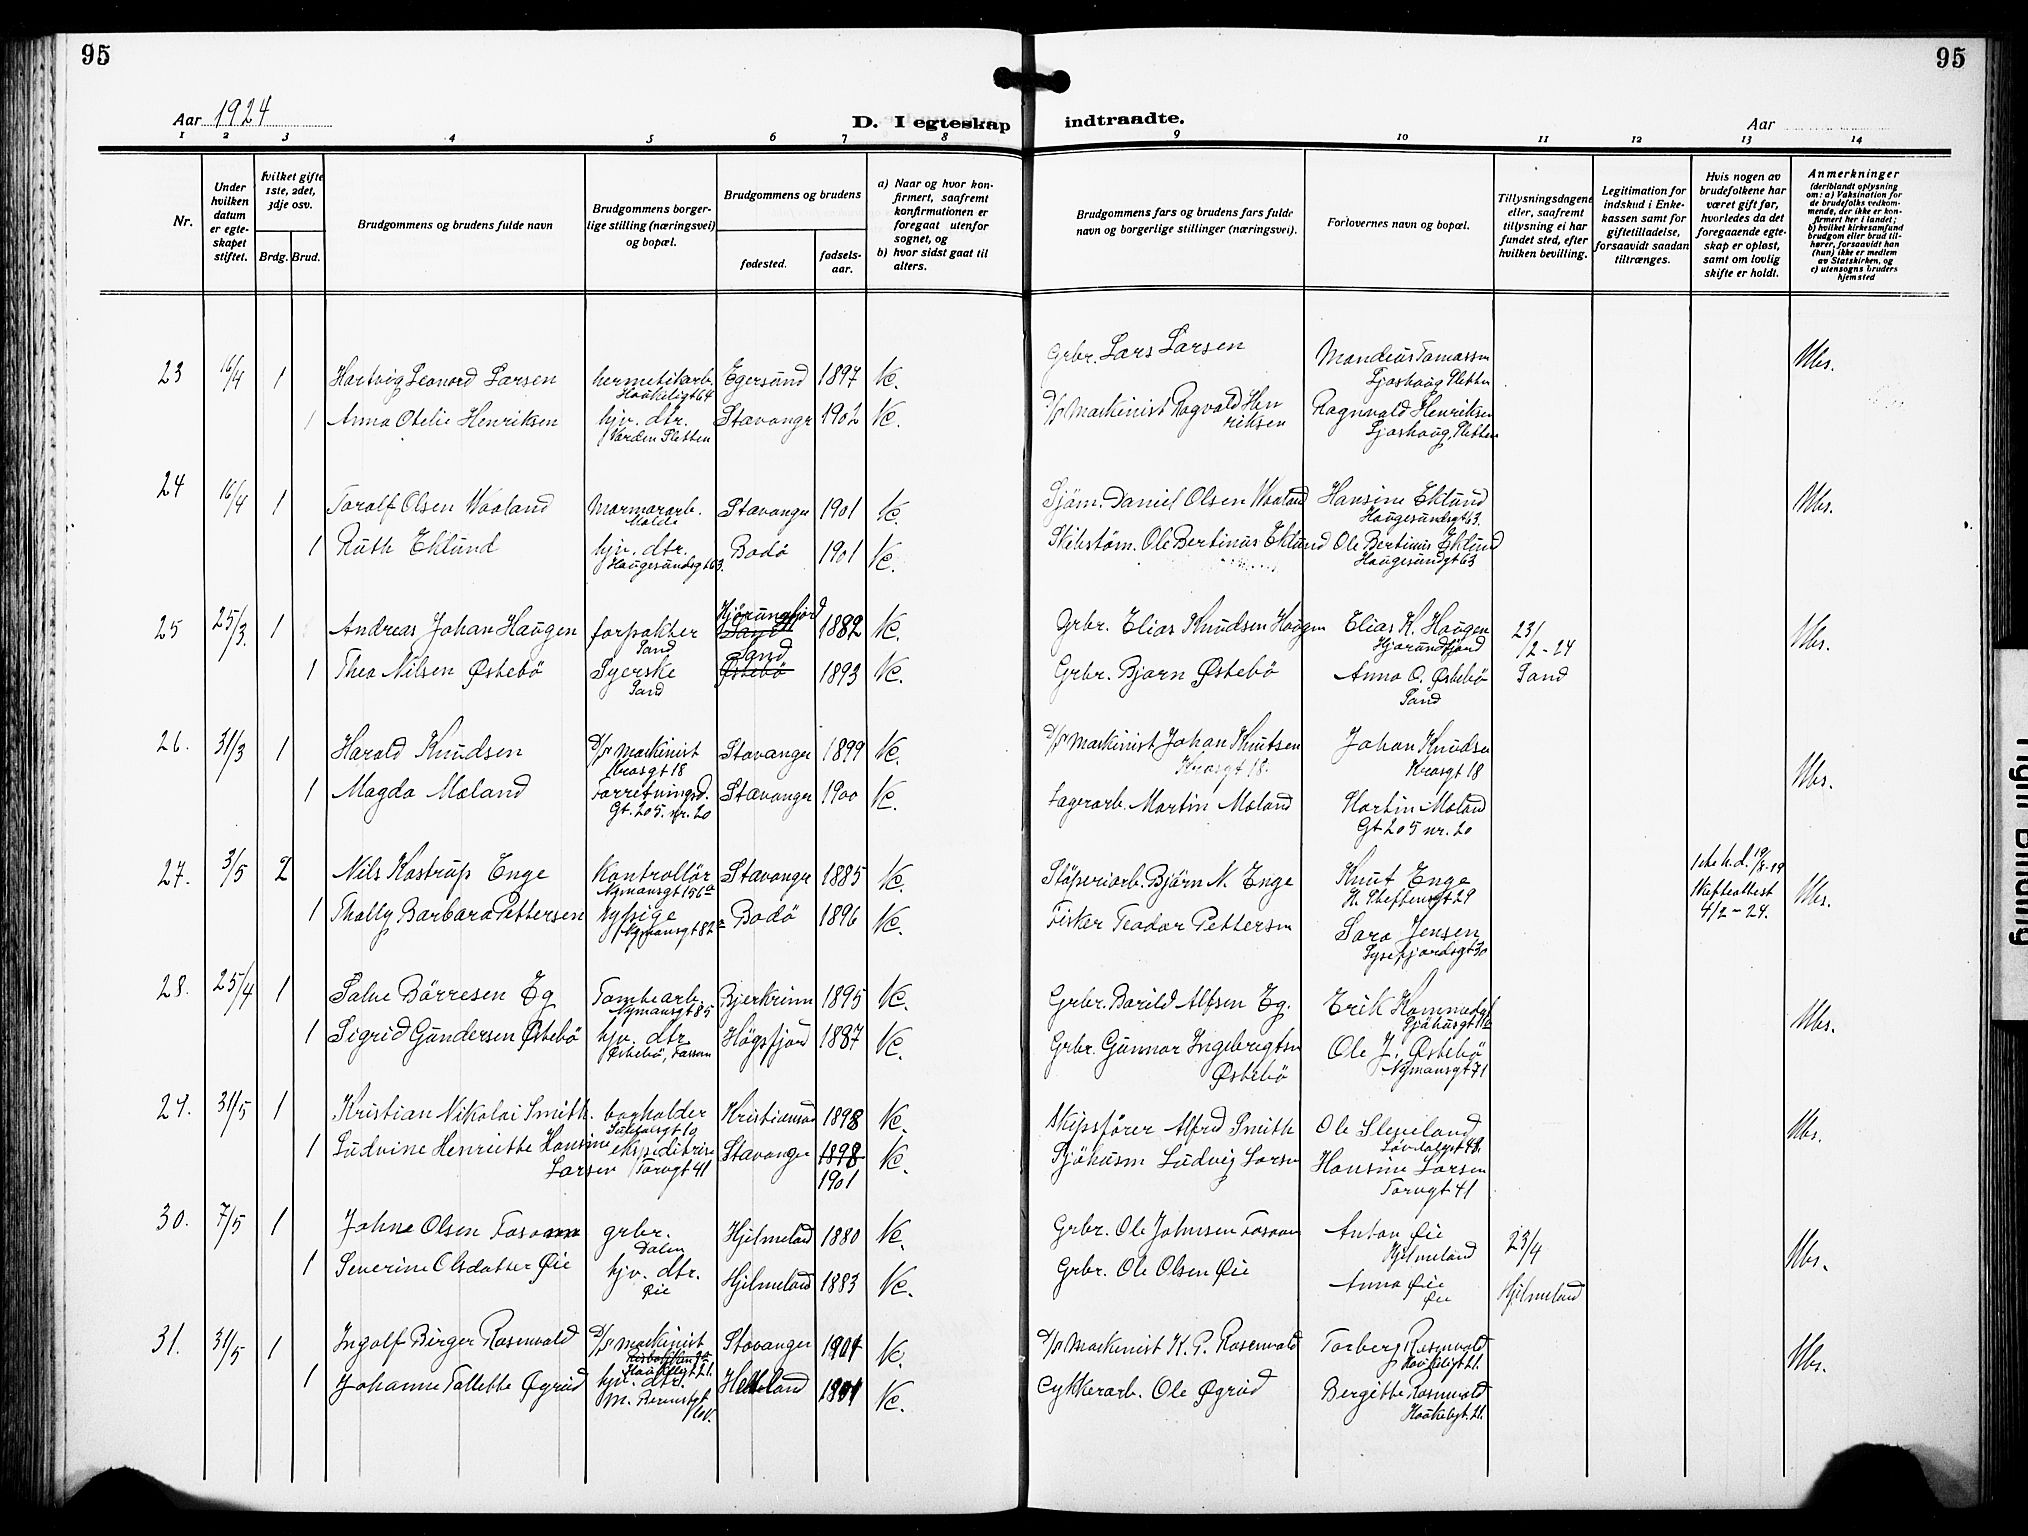 95
95
Aar 1924
D. I egteskap indtraadte.
Aar
1 2 3 4 5 6 7 8 9 10 11 12 13 14
Nr.
Under hvilken datum er egteskapet stiftet.
hvilket gifte 1ste, 2det, 3dje osv.
Brdg. Brud.
Brudgommens og brudens fulde navn
Brudgommens borgerlige stilling (næringsvei) og bopæl.
Brudgommens og brudens
fødested.
fødselsaar.
a) Naar og hvor konfirmert, saafremt konfirmationen er foregaat utenfor sognet, og
b) hvor sidst gaat til alters.
Brudgommens fars og brudens fars fulde navn og borgerlige stillinger (næringsvei).
Forlovernes navn og bopæl.
Tillysningsdagene eller, saafremt tillysning ei har fundet sted, efter hvilken bevilling.
Legitimation for indskud i Enkekassen samt for giftetilladelse, forsaavidt saadan tiltrænges.
Hvis nogen av brudefolkene har været gift før, hvorledes da det foregaaende egteskap er opløst, samt om lovlig skifte er holdt.
Anmerkninger
(deriblandt oplysning om: a) Vaksination for de brudefolks vedkommende, der ikke er konfirmert her i landet; b) hvilket kirkesamfund brudgom eller brud tilhører, forsaavidt han (hun) ikke er medlem av Statskirken, og c) utensogns bruders hjemsted
23 16/4 1 Hartvig Leonord Larsen hermetikarb. Haukeligt 64 Egersund 1897 Vc. Grbr. Lars Larsen Mandeus Tomassen Tjoshaug Pletten Ubs.
1 Anna Otelie Henriksen hjv. dtr. Varden Pletten Stavanger 1902 Vc. D/S Maskinist Ragvald Henriksen Ragnvald Henriksen Tjoshaug, Pletten
24 16/4 1 Toralf Olsen Waaland Marmorarb. Molde Stavanger 1901 Vc. Sjöm. Daniel Olsen Waaland Hansine Eklund Haugesundsgt 63. Ubs.
1 Ruth Eklund hjv. dtr. Haugesundsgt 63. Bodö 1901 Vc. Skibstöm. Ole Bertinus Eklund Ole Bertinus Eklund Haugesundgt 63
25 25/3. 1 Andreas Johan Haugen forpakter Sand Hjörungfjord Sand 1882 Vc. Grbr. Elias Knudsen Haugen Elias K. Haugen Hjörundfjord 23/2-24 Ubs.
1 Thea Nilsen Østebö Syerske Sand Sand Østebö 1893 Vc. Grbr. Bjorn Østebö Anna O. Østebö Sand Sand
26. 31/3 1 Harald Knudsen D/S Maskinist Krosgt 18 Stavanger 1899 Vc. D/S Maskinist Johan Knutsen Krosgt 18. Johan Knudsen Krosgt 18 Ubs.
1 Magda Moland Forretningsd. Gt. 205. nr. 20 Stavanger 1900 Vc. Lagerarb. Martin Moland Martin Moland Gt 205 nr. 20
27. 3/5 2 Nils Kastrup Enge Kontrollör Nymansgt 156a Stavanger 1885 Vc. Stöperiarb. Björn N. Enge Knut Enge H. Steffensgt 29 1ste h.d. 19/8-19 Skifteattest 4/2-24. Ubs.
1 Thally Barbara Pettersen Nymansgt 82a Bodö 1896 Vc. Fisker Teodor Pettersen Sara Jensen Lysefjordsgt 30
28. 25/4 1 Salve Börresen Eg Tombearb. Nymansgt 85 Bjerkrim 1895 Vc. Grbr. Borild Alfsen Eg. Erik Sjöhusgt Ubs.
1 Sigrid Gundersen Østebö hjv. dtr. Østebö, Fossan Högsfjord 1887 Vc. Grbr. Gunnar Ingebregtsen Østebö Ole J. Østebö Nymansgt 71
29. 31/5 1 Kristian Nikolai Smith. bogholder Kristiansad 1898 Vc. Skipsförer Alfred Smith Ole Sleveland Lövdalsgt 48. Ubs.
1 Ludvine Henriette Hansine Larsen ekspeditrise Torvgt 41 Stavanger 1898 1901 Vc. Sjöhusm Ludvig Larsen Hansine Larsen Torvgt 41
30. 7/5 1 Johne Olsen Fosaan grbr. Dalen Hjelmeland 1880 Vc. Grbr. Ole Johnsen Fosaan Anton Øie Hjelmeland 23/4 Ubs.
1 Severine Olsdatter Øie hjv. dtr. Øie Hjelmeland 1883 Vc. Grbr. Ole Olsen Øie Anna Øie Øie Hjelmeland
31. 31/5 1 Ingolf Birger Rosenvald D/S Maskinist Haukeligt 21. Stavanger 1901 Vc. D/S Maskinist K. P. Rosenvald Torberg Rosenvald Haukeligt 21. Ubs.
1 Johanne Tollette Øgrid hjv. dtr. Hetland 1901 Vc. Cykkerarb. Ole Øgrid Bergitte Rosenvald Haukeligt. 21.